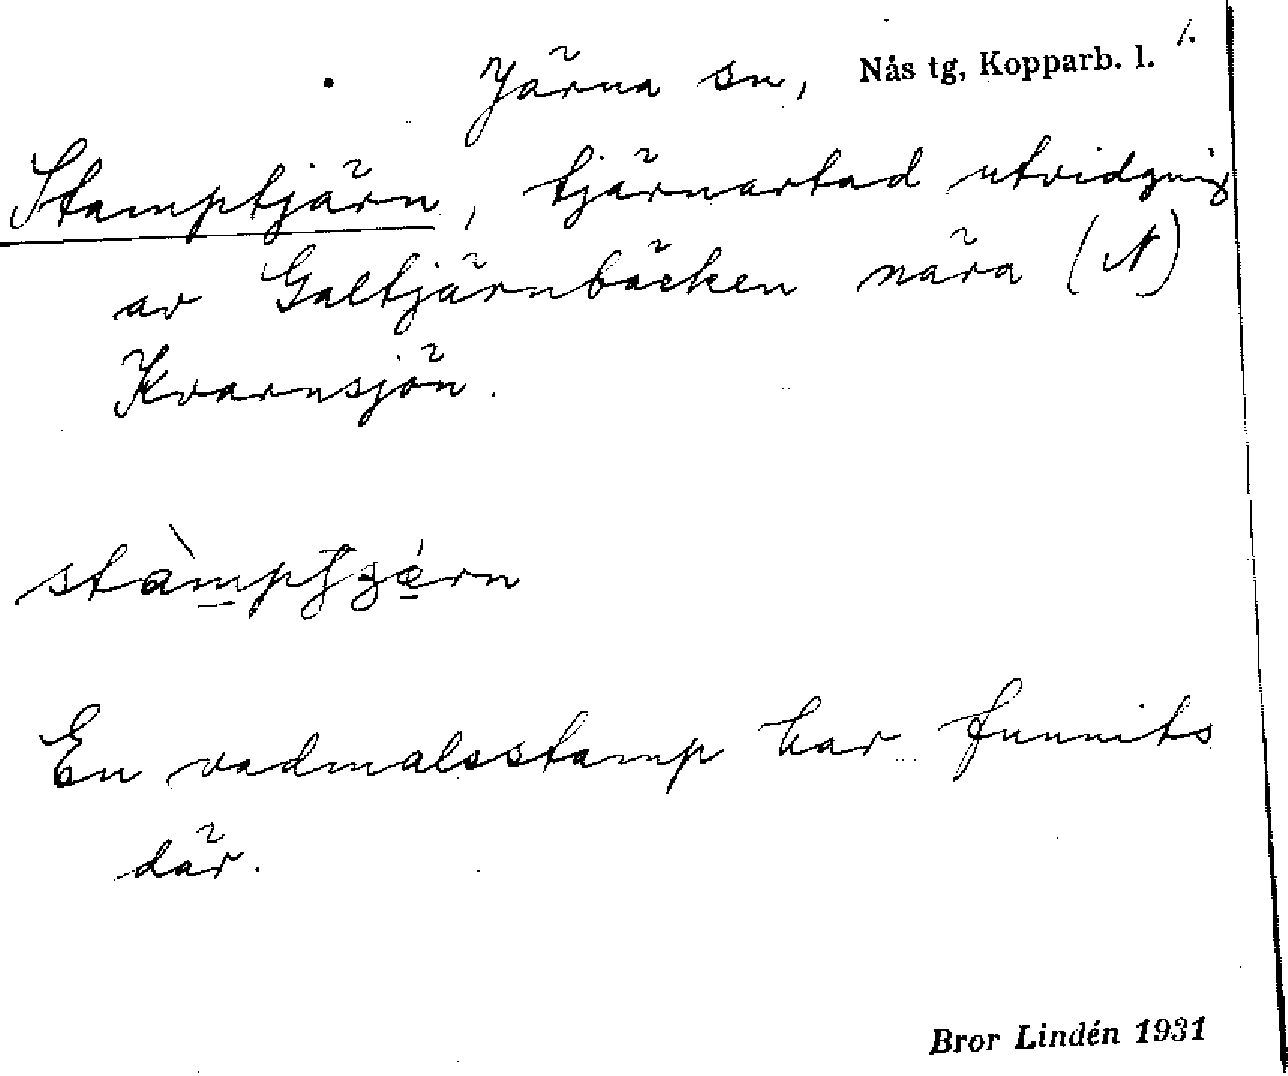 Järna sn, Nås tg, Kopparb. l. 1.
Stamptjärn, tjärnartad utvidgning
av Galtjärnbäcken nära (N)
Kvarnsjön.
En vadmalsstamp har funnits
där.
Bror Lindén 1931